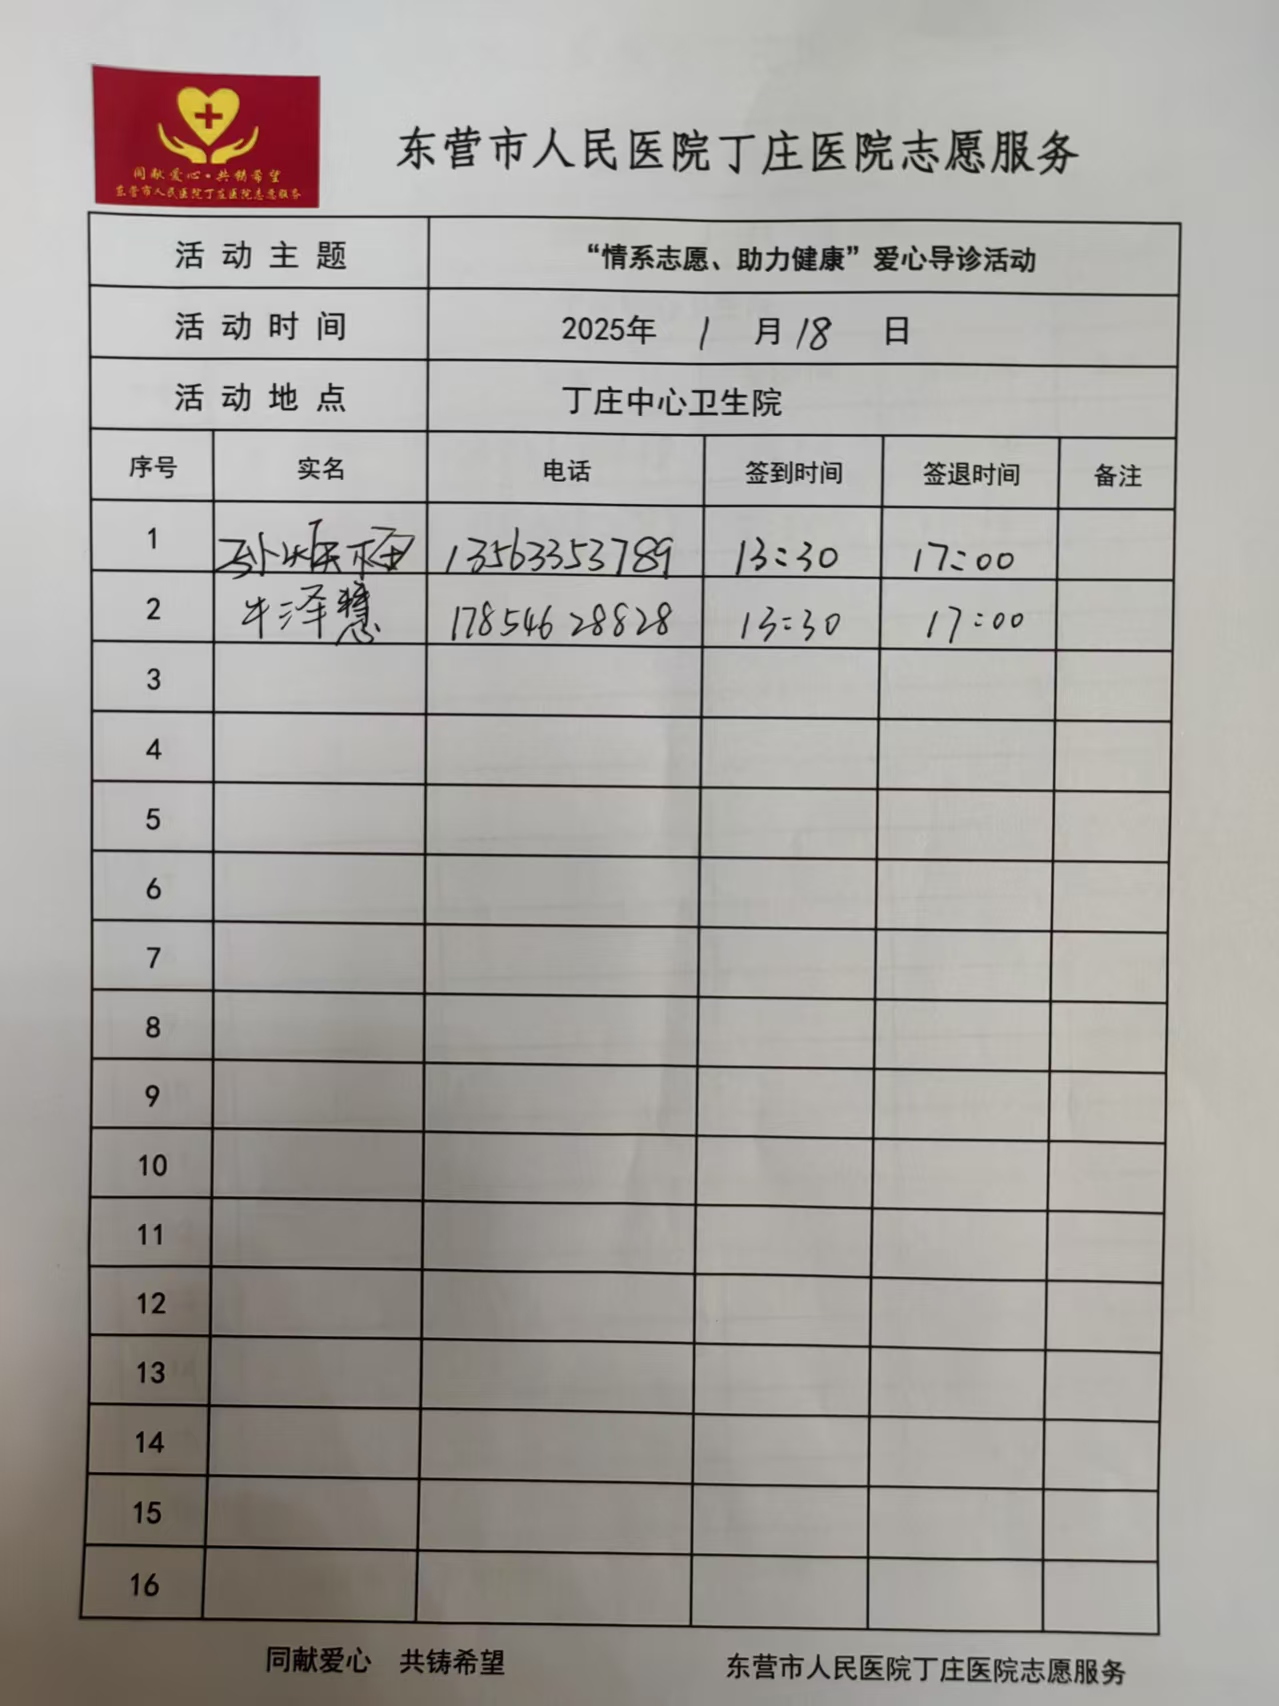 同献爱心·共铸希望
东营市人民医院丁庄医院志愿服务
东营市人民医院丁庄医院志愿服务
活动主题 “情系志愿、助力健康”爱心导诊活动
活动时间 2025年 1 月 18 日
活动地点 丁庄中心卫生院
序号 实名 电话 签到时间 签退时间 备注
1 13563353789 13:30 17:00
2 牛泽慧 17854628828 13:30 17:00
3
4
5
6
7
8
9
10
11
12
13
14
15
16
同献爱心 共铸希望 东营市人民医院丁庄医院志愿服务